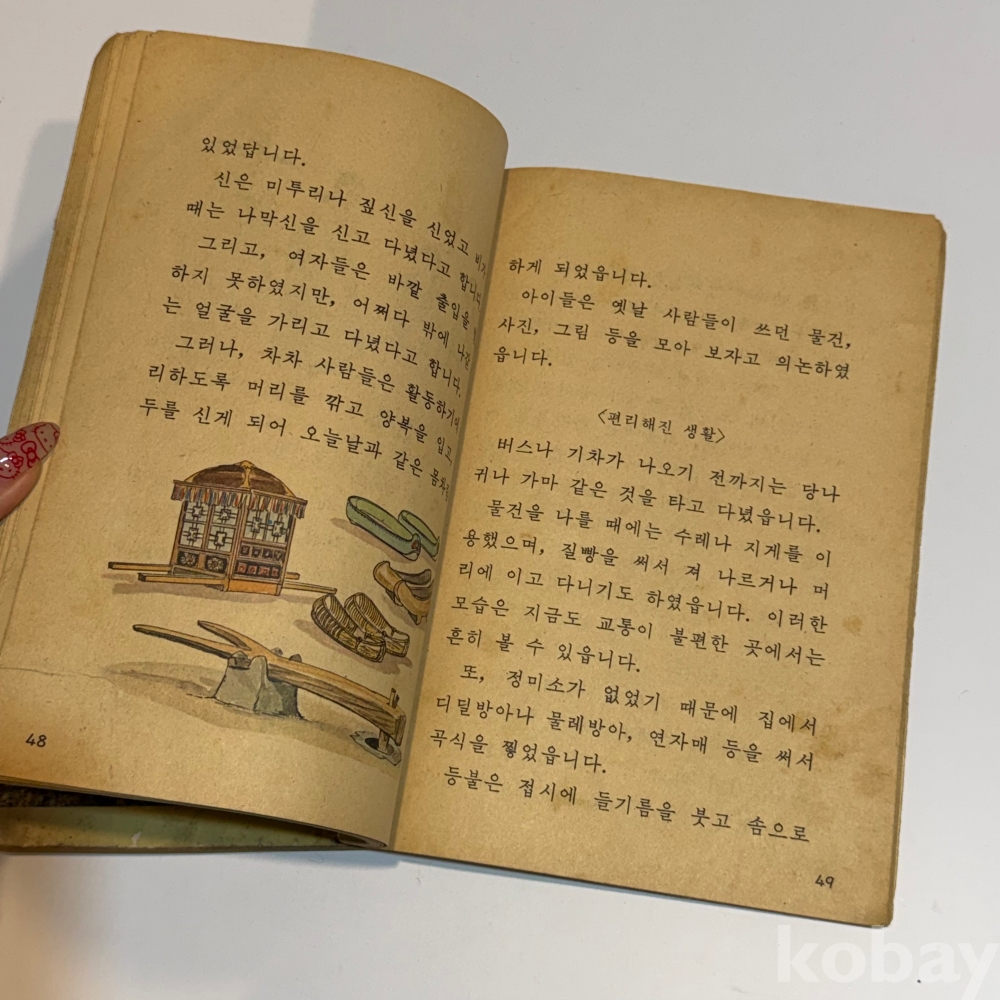 있었답니다.
신은 미투리나 짚신을 신었고 비가
때는 나막신을 신고 다녔다고 합니다.
그리고, 여자들은 바깥 출입을
하지 못하였지만, 어쩌다 밖에 나갈
는 얼굴을 가리고 다녔다고 합니다.
그러나, 차차 사람들은 활동하기에
리하도록 머리를 깎고 양복을 입고,
두를 신게 되어 오늘날과 같은
48
하게 되었읍니다.
아이들은 옛날 사람들이 쓰던 물건,
사진, 그림 등을 모아 보자고 의논하였
읍니다.
〈편리해진 생활〉
버스나 기차가 나오기 전까지는 당나
귀나 가마 같은 것을 타고 다녔읍니다.
물건을 나를 때에는 수레나 지게를 이
용했으며, 질빵을 써서 져 나르거나 머
리에 이고 다니기도 하였읍니다. 이러한
모습은 지금도 교통이 불편한 곳에서는
흔히 볼 수 있읍니다.
또, 정미소가 없었기 때문에 집에서
디딜방아나 물레방아, 연자매 등을 써서
곡식을 찧었읍니다.
등불은 접시에 들기름을 붓고 솜으로
49
kobay